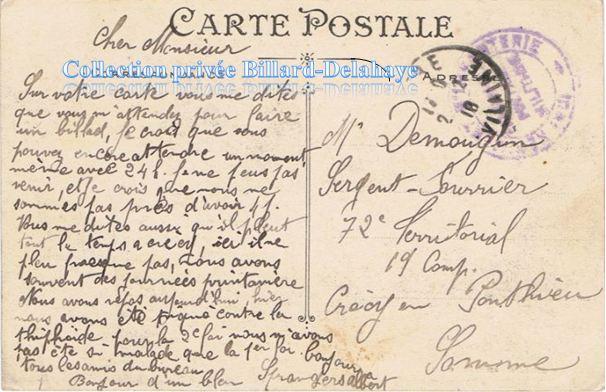 CARTE POSTALE
Collection privée Billard-Delahaye
ADRESSE
Cher Monsieur
Sur votre carte vous me dites
que vous m'attendez pour faire
un billard, je crois que vous
pouvez encore attendre un moment
même avec 24 h. je ne peus pas
venir, et je crois que nous ne
sommes pas près d'avoir 4 j.
Vous me dites aussi qu'il pleut
tout le temps a crecy, ici il ne
pleu presque pas, nous avons
souvent des journées printanière
Nous avons repos aujourd'hui, hier
nous avons été piqué contre la
thiphoïde pour la 2e foi nous n'avons
pas été si malade que la 1er foi. bonjour a
tous les amis du bureau
Bonjour d'un bleu
albert
Mr Demougin
Sergent-Fourrier
72e Territorial
19 Comp.
Crécy en Ponthieu
Somme